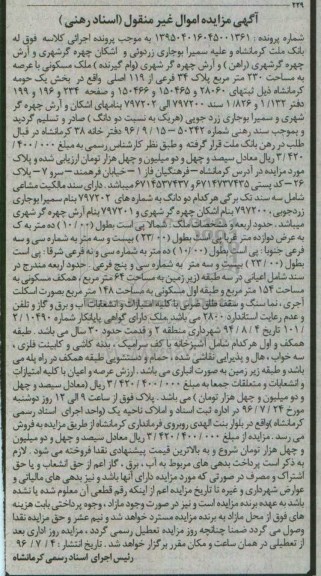 ۲۲۹
آگهی مزایده اموال غیر منقول (اسناد رهنی)
شماره پرونده : ۱۳۹۵۰۴۰۱۶۰۴۵۰۰۱۳۶۱ به موجب پرونده اجرائی کلاسه فوق له
بانک ملت کرمانشاه و علیه سمیرا بوجاری زردوئی و اشکان چهره گرشهری و آرش
چهره گرشهری (راهن) و آرش چهره گر شهری (وام گیرنده) ملک مسکونی با عرصه
به مساحت ۲۳۰ متر مربع پلاک ۳۴ فرعی از ۱۱۹ اصلی واقع در بخش یک حومه
کرمانشاه ذیل ثبتهای ۲۸۰۶۰ و ۱۵۰۴۶۵ و ۱۵۰۴۶۶ و صفحه ۲۳۴ و ۱۹۶ و ۱۹۹
دفتر ۱/۱۳۲ و ۱/۸۲۶ سند ۷۹۷۲۰۰ الی ۷۹۷۲۰۲ بنامهای اشکان و آرش چهره گر
شهری و سمیرا بوجاری زرد جویی (هریک به نسبت دو دانگ) صادر و تسلیم گردید
و بموجب سند رهنی شماره ۵۰۲۴۲ – ۹۶/۹/۱۵ دفتر خانه ۳۸ کرمانشاه در قبال
طلب در رهن بانک ملت قرار گرفته و طبق نظر کارشناس رسمی به مبلغ ۴۰۰/۰۰۰/
۳/۴۲۰ ریال معادل سیصد و چهل و دو میلیون و چهل هزار تومان ارزیابی شده و پلاک
مورد مزایده در آدرس کرمانشاه – فرهنگیان فاز ۱ – خیابان فرهمند – سرو ۷ – پلاک
۲۶ – کد پستی ۶۷۱۴۷۳۷۴۳۵ و ۶۷۱۴۵۳۷۴۳۷ میباشد. دارای سند مالکیت مشاعی
شامل سه سند تک برگی هر کدام دو دانگ به شماره های ۷۹۷۲۰۲ بنام سمیرا بوجاری
زردجویی، ۷۹۷۲۰۰ بنام اشکان چهره گر شهری و ۷۹۷۲۰۱ بنام آرش چهره گر شهری
میباشد . حدود اربعه و مشخصات ملک : شمالا پی است بطول (۱۰/۰۰) ده متر به ک
به عرض دوازده متر غربا پی است بطول (۲۳/۰۰) بیست و سه متر به شماره سی و سه
فرعی جنوبا : پی است بطول (۱۰/۰۰) ده متر به شماره سی و نه فرعی شرقا : پی است
بطول (۲۳/۰۰) بیست و سه متر به شماره سی و پنج فرعی . حدود اربعه مندرج در
سند شامل اعیانی در سه طبقه (زیر زمین به مساحت ۶۴ متر مربع / همکف مسکونی به
مساحت ۱۵۴ متر مربع و طبقه اول مسکونی به مساحت ۱۴۸ متر مربع بصورت اسکلت
آجری ، نما سنگ و سقف طاق ضربی با کلیه امتیازات و انشعابات آب و برق و گاز و تلفن
و عدم رعایت استاندارد ۲۸۰۰ می باشد ملک دارای گواهی پایانکار شماره ۲/۱۰۴۹۰
/۱۰۱ تاریخ ۹۴/۸/۲ شهرداری منطقه ۲ و قدمت حدود ۳۰ سال می باشد . طبقه
همکف و اول هر کدام شامل آشپزخانه با کف سرامیک ، بدنه کاشی و کابینت فلزی ،
سه خواب ، هال و پذیرایی نقاشی شده ، حمام و دستشویی طبقه همکف در راه پله می
باشد و طبقه زیر زمین به صورت انباری می باشد . ارزش عرصه و اعیان با کلیه امتیازات
و انشعابات و متعلقات جمعا به مبلغ ۳/۴۲۰/۴۰۰/۰۰۰ ریال (معادل سیصد و چهل
و دو میلیون و چهل هزار تومان ) می باشد . پلاک فوق از ساعت ۹ الی ۱۲ روز دوشنبه
مورخ ۹۶/۷/۲۴ در اداره ثبت اسناد و املاک ناحیه یک (واحد اجرای اسناد رسمی
کرمانشاه )واقع در بلوار بنت الهدی روبروی فرمانداری کرمانشاه از طریق مزایده به فروش
می رسد . مزایده از مبلغ ۳/۴۲۰/۴۰۰/۰۰۰ ریال معادل سیصد و چهل و دو میلیون
و چهل هزار تومان شروع و به بالاترین قیمت پیشنهادی نقدا فروخته می شود . لازم
به ذکر است پرداخت بدهی های مربوط به آب ، برق ، گاز اعم از حق انشعاب و یا حق
اشتراک و مصرف در صورتی که مورد مزایده دارای آنها باشد و نیز بدهی های مالیاتی و
عوارض شهرداری و غیره تا تاریخ مزایده اعم از اینکه رقم قطعی آن معلوم شده یا نشده
باشد به عهده برنده مزایده است و نیز در صورت وجود مازاد ، وجوه پرداختی بابت هزینه
های فوق از محل مازاد به برنده مزایده مسترد خواهد شد و نیم عشر و حق مزایده نقدا
وصول می گردد ضمنا چنانچه روز مزایده تعطیل رسمی گردد ، مزایده روز اداری بعد
از تعطیلی در همان ساعت و مکان مقرر برگزار خواهد شد . تاریخ انتشار : ۹۶/۷/۴
رئیس اجرای اسناد رسمی کرمانشاه